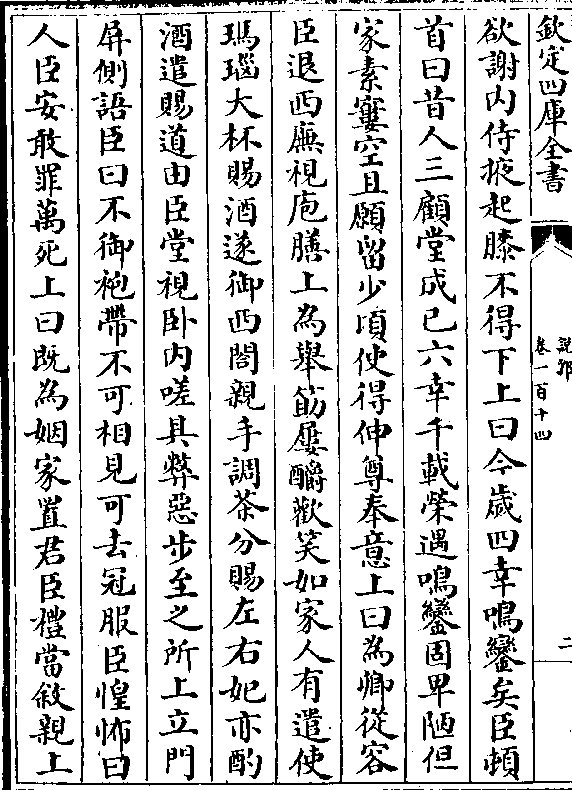 欽定四庫全書
說郛
卷一百十四
二
欲謝內侍掖起膝不得下上曰今嵗四幸鳴鑾矣臣頓
首曰昔人三顧堂成已六幸千載榮遇鳴鑾固卑陋但
家素窶空且願留少頃使得伸尊奉意上曰為卿從容
臣退西廡視庖膳上為舉筯屢釂歡笑如家人有遣使
瑪瑙大杯賜酒遂御西閤親手調茶分賜左右妃亦酌
酒遣賜道由臣堂視卧内嗟其弊惡步至之所上立門
屏側語臣曰不御袍帶不可相見可去冠服臣惶怖曰
人臣安敢罪萬死上曰既為姻家置君臣禮當敘親上